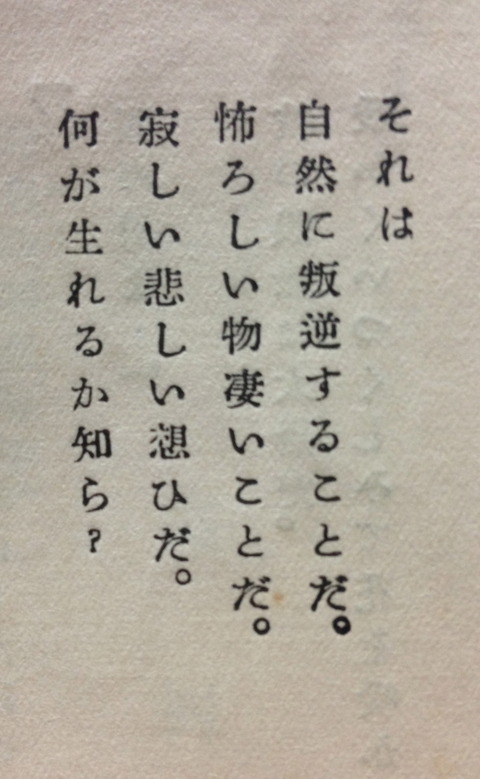 それは
自然に叛逆することだ。
怖ろしい物凄いことだ。
寂しい悲しい想ひだ。
何が生れるか知ら？